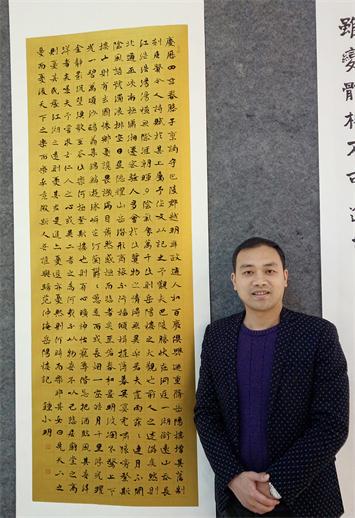 雖變體
慶曆四年春滕子京謫守巴陵郡越明年政通人和百廢具興迺重脩岳陽樓增其舊制
刻唐賢今人詩賦於其上屬予作文以記之予觀夫巴陵勝狀在洞庭一湖銜遠山吞長
江浩浩湯湯橫無際涯朝暉夕陰氣象萬千此則岳陽樓之大觀也前人之述備矣然則
北通巫峽南極瀟湘遷客騷人多會於此覽物之情得無異乎若夫霪雨霏霏連月不開
陰風怒號濁浪排空日星隱耀山岳潛形商旅不行檣傾楫摧薄暮冥冥虎嘯猿啼登斯
樓也則有去國懷鄉憂讒畏譏滿目蕭然感極而悲者矣至若春和景明波瀾不驚上下天
光一碧萬頃沙鷗翔集錦鱗游泳岸芷汀蘭郁郁青青而或長煙一空皓月千里浮光躍
金靜影沉璧漁歌互答此樂何極登斯樓也則有心曠神怡寵辱偕忘把酒臨風其喜洋
洋者矣嗟夫予嘗求古仁人之心或異二者之為何哉不以物喜不以己悲居廟堂之高
則憂其民處江湖之遠則憂其君是進亦憂退亦憂然則何時而樂耶其必曰先天下之
憂而憂後天下之樂而樂乎噫微斯人吾誰與歸范仲淹岳陽樓記 鍾小明